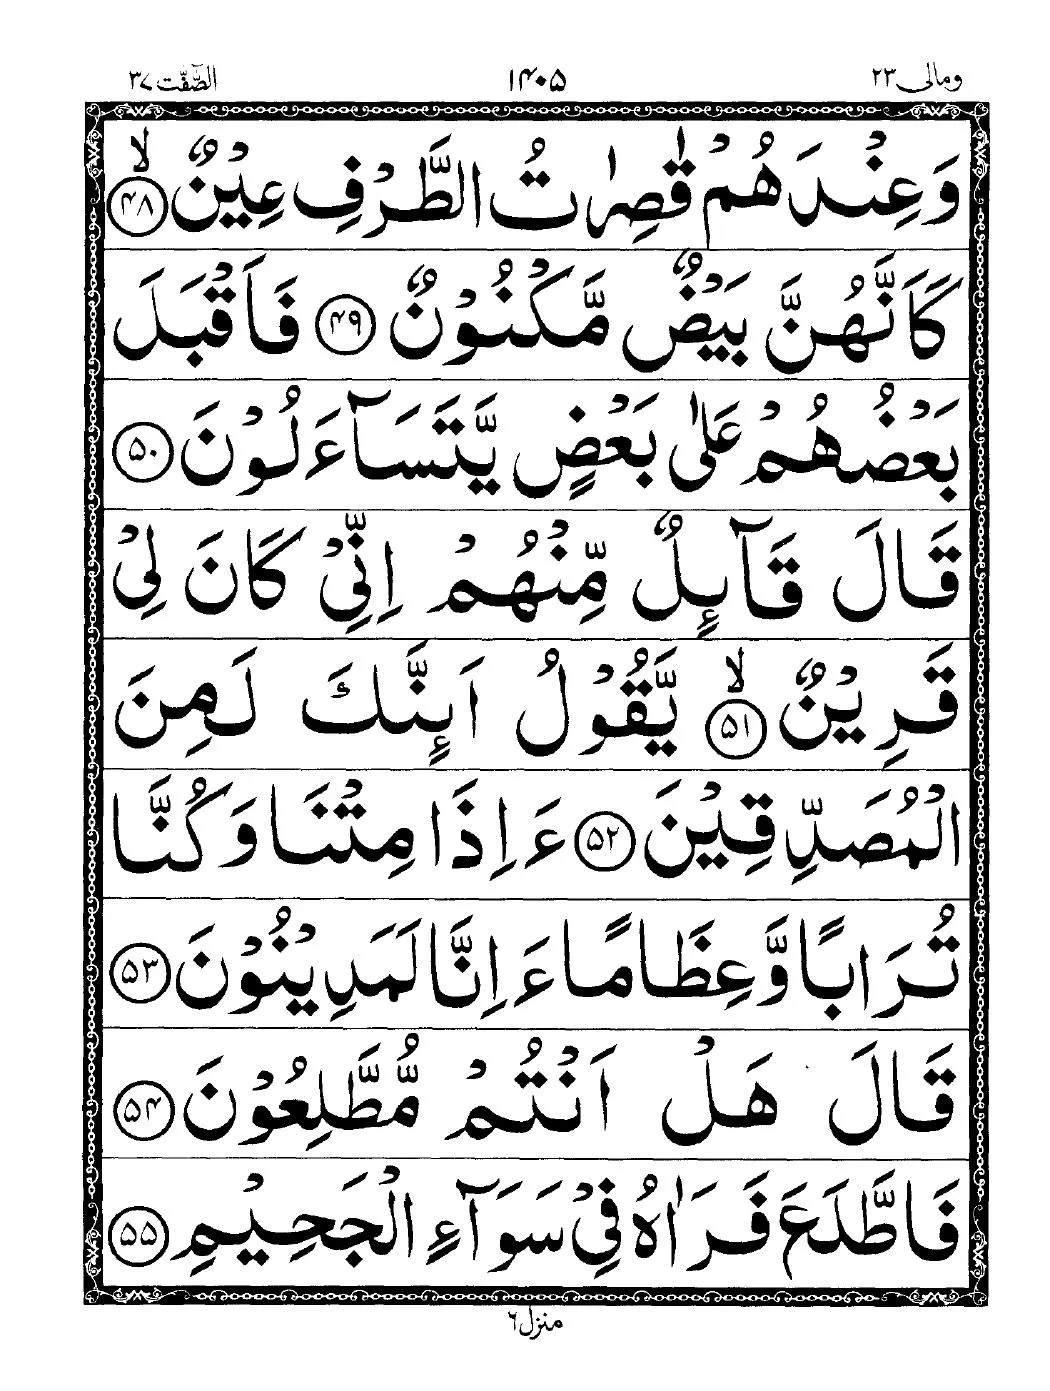 ومالی ۲۳ ۱۴۰۵ الصّٰٓفّٰت ۳۷
وَعِنۡدَهُمۡ قٰصِرٰتُ الطَّرۡفِ عِيۡنٌۙ ﴿۴۸﴾
كَاَنَّهُنَّ بَيۡضٌ مَّكۡنُوۡنٌ ﴿۴۹﴾ فَاَقۡبَلَ
بَعۡضُهُمۡ عَلٰى بَعۡضٍ يَّتَسَآءَلُوۡنَ ﴿۵۰﴾
قَالَ قَآئِلٌ مِّنۡهُمۡ اِنِّىۡ كَانَ لِىۡ
قَرِيۡنٌۙ ﴿۵۱﴾ يَّقُوۡلُ اَئِنَّكَ لَمِنَ
الۡمُصَدِّقِيۡنَ ﴿۵۲﴾ ءَاِذَا مِتۡنَا وَكُنَّا
تُرَابًا وَّعِظَامًا ءَاِنَّا لَمَدِيۡنُوۡنَ ﴿۵۳﴾
قَالَ هَلۡ اَنۡتُمۡ مُّطَّلِعُوۡنَ ﴿۵۴﴾
فَاطَّلَعَ فَرَاٰهُ فِىۡ سَوَآءِ الۡجَحِيۡمِ ﴿۵۵﴾
منزل ۶